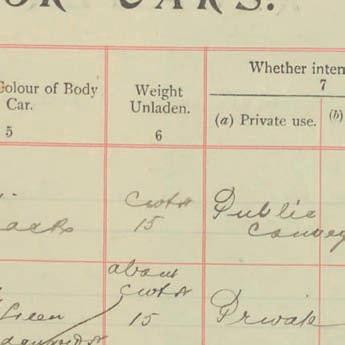 OR CARS.
Colour of Body Car.
5
Weight Unladen.
6
Whether inten
7
(a) Private use.
(b)
cwts
15
Public
convey
about
cwts
15
Green
Private